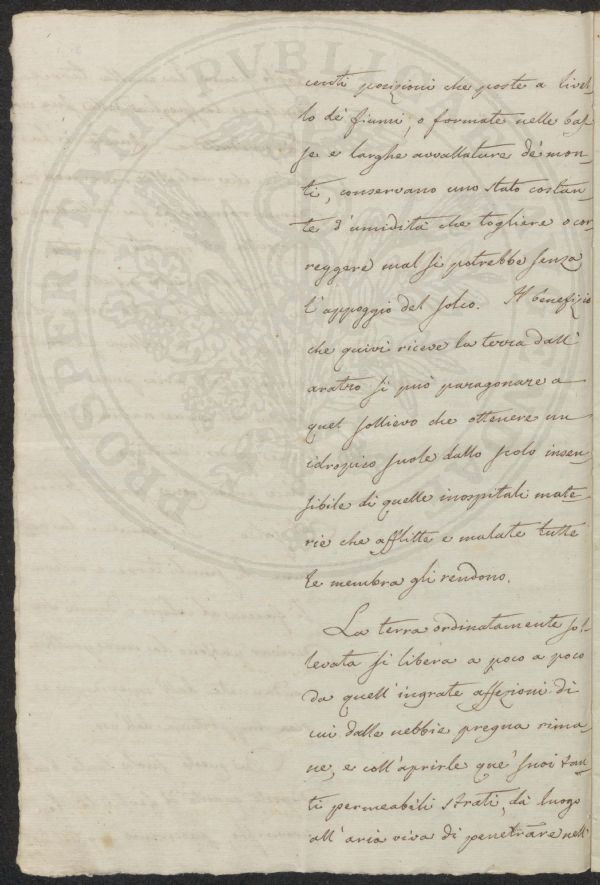 centi posizioni che poste a livel-
lo de' fiumi, o formate nelle bas-
se e larghe avvallature de' mon-
ti, conservano uno stato costan-
te d'umidità che togliere o cor-
reggere mal si potrebbe senza
l'appoggio del solco. Il benefizio
che quivi riceve la terra dall'
aratro si può paragonare a
quel sollievo che ottenere un
idropico suole dallo scolo insen-
sibile di quelle inospitali mate-
rie che afflitte e malate tutte
le membra gli rendono.
La terra ordinatamente sol-
levata si libera a poco a poco
da quell'ingrate affezioni di
cui dalle nebbie pregna rima-
ne, e coll'aprirle que' suoi tan-
ti permeabili strati, dà luogo
all'aria viva di penetrare nell'
PROSPERITATI PVBLICAE